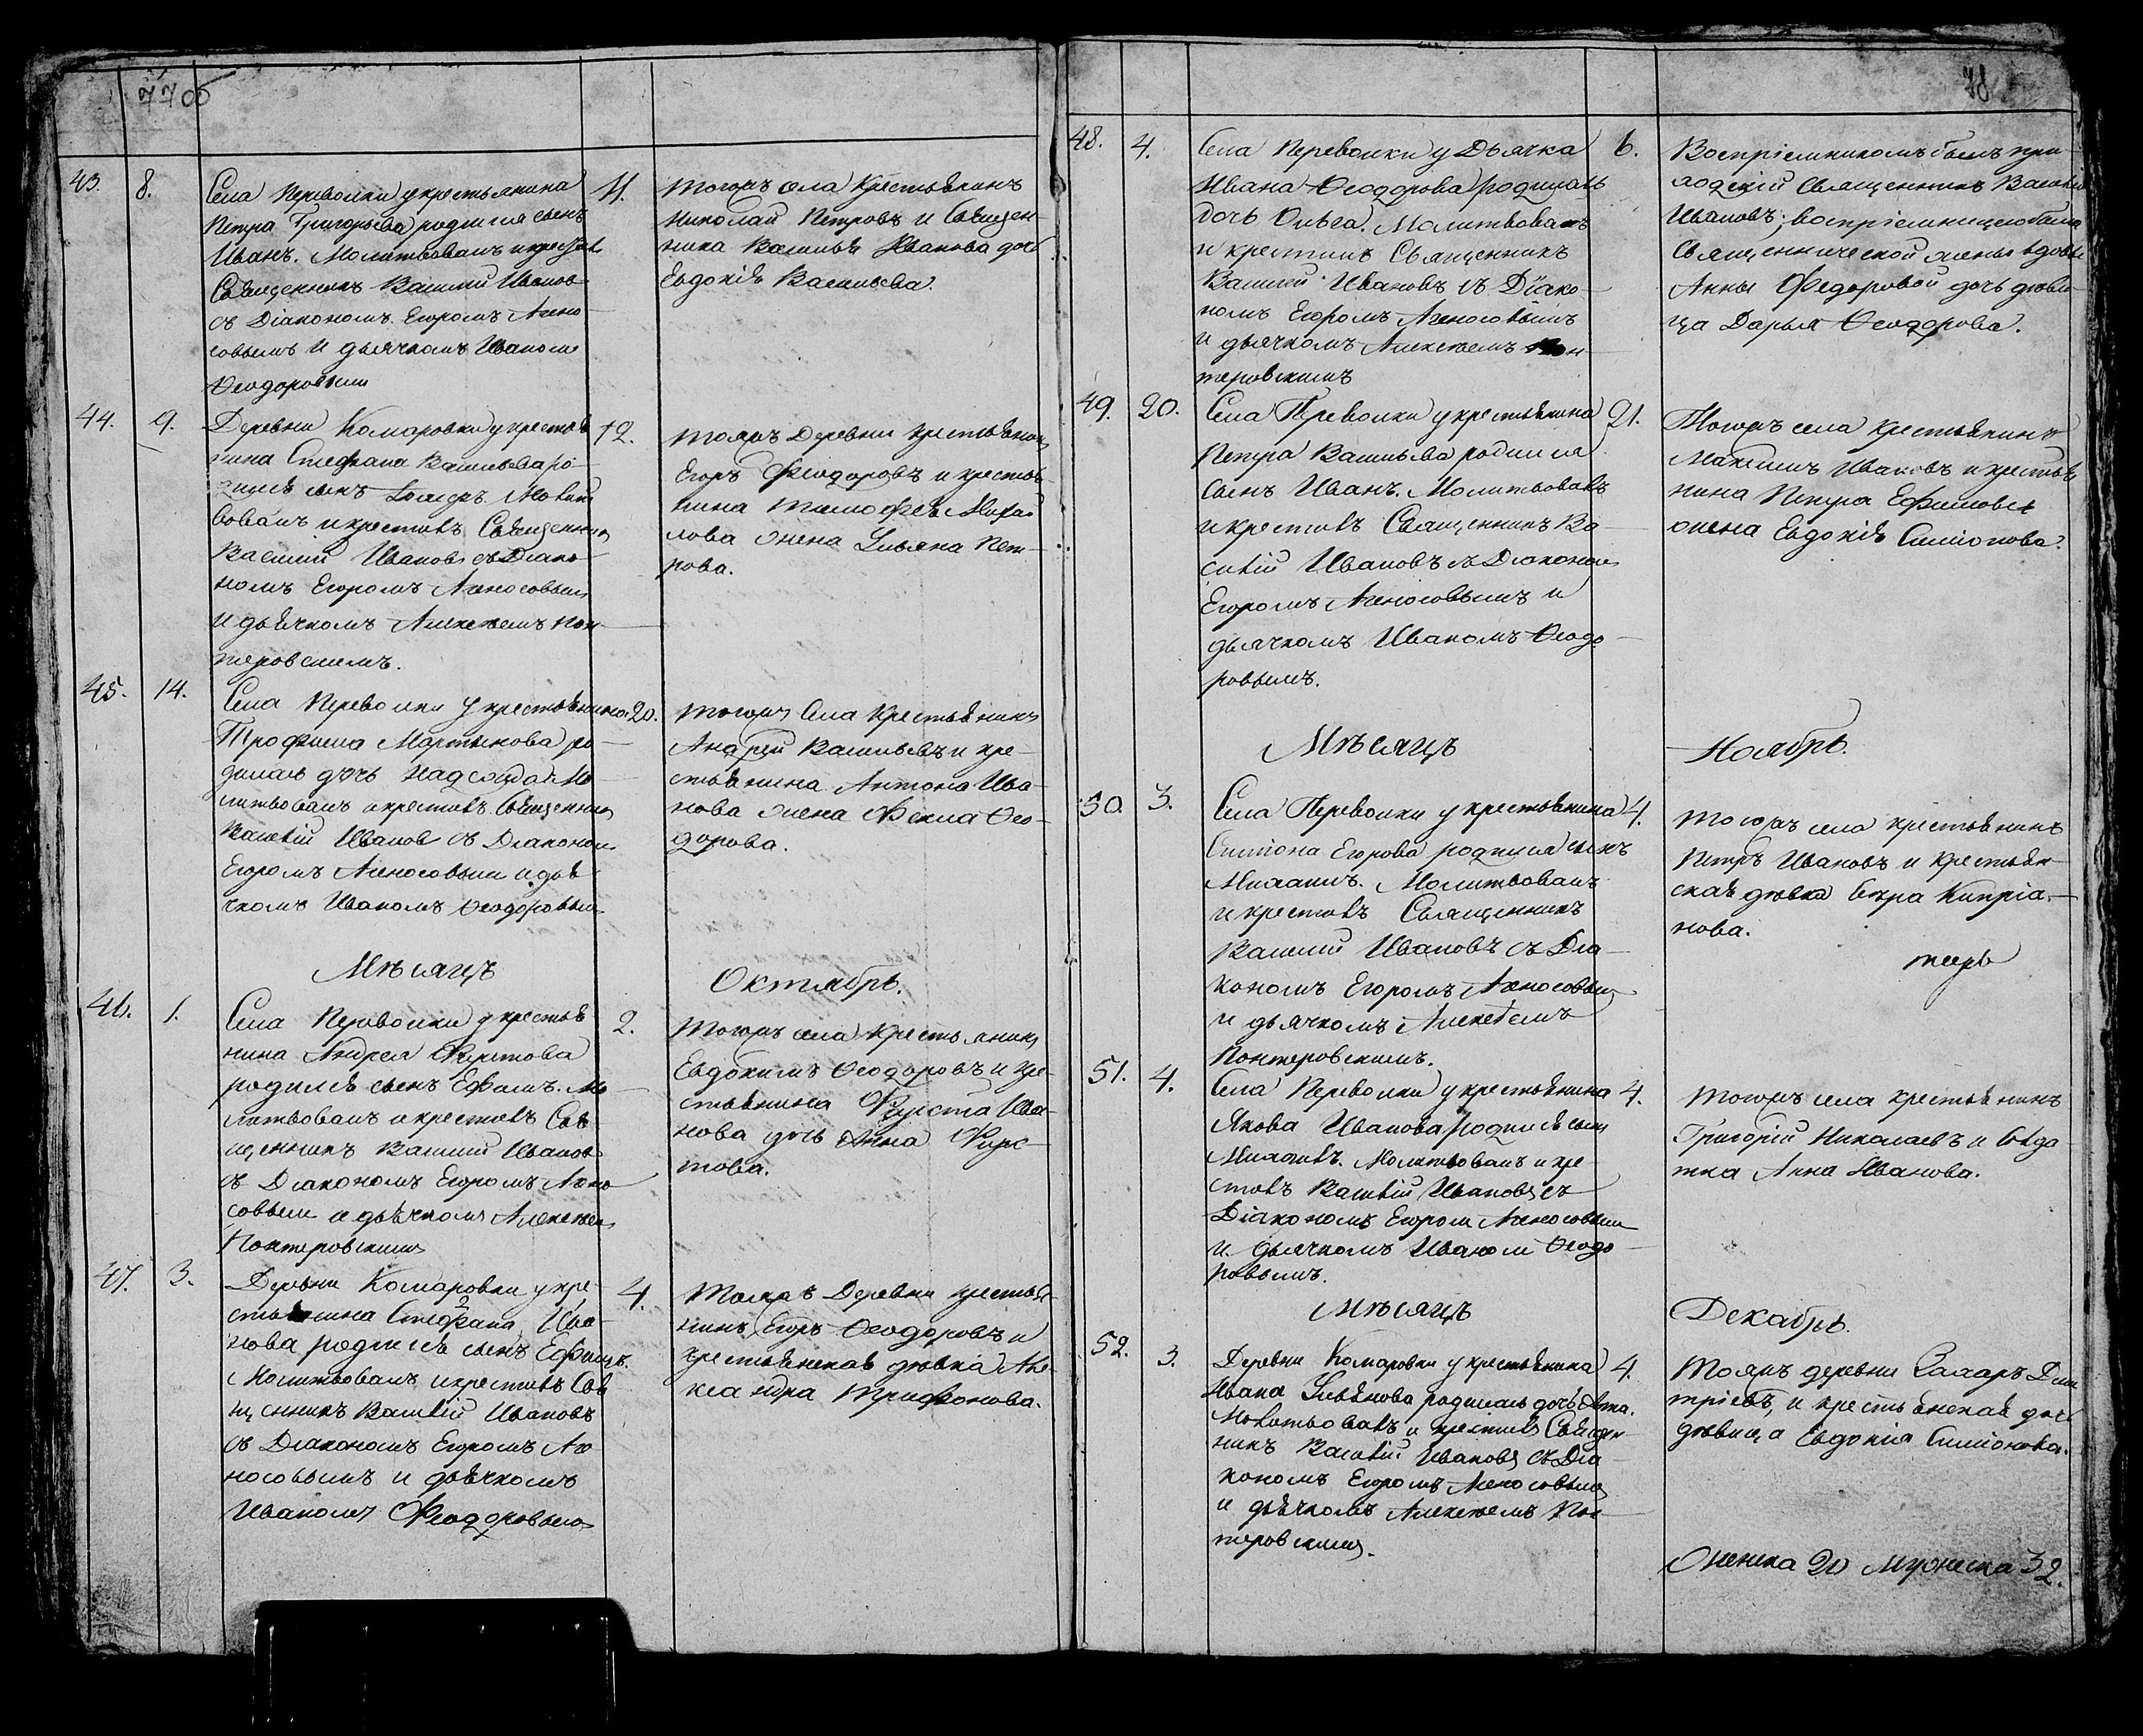 77об
43. 8.
Села Переволки у крестьянина
Петра Григорьева родился сынъ
Иванъ. Молитвовалъ и крестилъ
Священникъ Василий Иванов
съ Діакономъ Егоромъ Ахно-
совымъ и дьячкомъ Иваном
Ѳеодоровым
11.
тогожъ села Крестьянинъ
Николай Петровъ и Священ-
ника Василья Иванова дочь
Евдокія Васильева.
44. 9.
Деревни Комаровки у крестья
нина Стефана Васильева ро-
дился сынъ Молит
вовалъ и крестилъ Священник
Василий Иванов съ Діако-
номъ Егоромъ Ахносовым
и дьячкомъ Алексеемъ Пон-
теровскимъ.
12.
тояжъ Деревни крестьянинъ
Егоръ Феодоровъ и крестья-
нина Тимофея Михай
лова жена Ульяна Пет-
рова.
45. 14.
Села Переволки у крестьянина
Трофима Мартынова ро-
дилась дочь Надежда. Мо-
литвовалъ и крестилъ Священник
Василій Иванов съ Діаконом
Егоромъ Ахносовым и дья
чкомъ Иваномъ Ѳеодоровым
20.
тогожъ Села Крестьянинъ
Андрей Васильевъ и кре-
стьянина Антона Ива-
нова жена Фекла Ѳео-
дорова.
Мѣсяцъ
Октябрь.
46. 1.
Села Переволки у крестья
нина Андрея Фирстова
родился сынъ Ефимъ. Мо-
литвовалъ и крестилъ Свя-
щенникъ Василий Иванов
съ Діакономъ Егоромъ Ахно-
совым и дьячкомъ Алексеем
Понтеровским
2.
тогожъ села Крестьянинъ
Евдокимъ Ѳеодоровъ и кре-
стьянина Фирста Ива-
нова дочь Анна Фирс-
това.
47. 3.
Деревни Комаровки у кре-
стьянина Стефана 2 Ива-
нова родился сынъ Ефимъ.
Молитвовалъ и крестилъ Свя
щенникъ Василій Ивановъ
съ Діакономъ Егоромъ Ах
носовымъ и дьячкомъ
Иваномъ Феодоровым
4.
тояжъ Деревни крестья-
нинъ Егоръ Ѳеодоровъ и
крестьянская дѣвка Але-
ксандра Трифонова.
78
48. 4.
Села Переволки у Дьячка
Ивана Ѳеодорова родилась
дочь Ольга. Молитвовалъ
и крестилъ Священникъ
Василий Ивановъ съ Діако-
номъ Егоромъ Ахносовымъ
и дьячкомъ Алексеемъ Пон-
теровскимъ
6.
Воспріемникомъ былъ при
ходскій Священникъ Василій
Ивановъ; воспріемницею была
Священнической жены вдовы
Анны Федоровой дочь дѣви-
ца Дарья Ѳеодорова.
49. 20.
Села Переволки у крестьянина
Петра Васильева родился
сынъ Иванъ. Молитвовалъ
и крестилъ Священникъ Ва-
силій Ивановъ съ Діаконом
Егоромъ Ахносовымъ и
дьячкомъ Иваномъ Ѳеодо-
ровымъ.
21.
Тогожъ села крестьянинъ
Максимъ Ивановъ и крестья
нина Петра Ефимова
жена Евдокія Симіонова.
Мѣсяцъ
Ноябрь.
50. 3.
Села Переволки у крестьянина
Симіона Егорова родился сынъ
Михаилъ. Молитвовалъ
и крестилъ Священникъ
Василий Ивановъ съ Діа-
кономъ Егоромъ Ахносовым
и дьячкомъ Алексеемъ
Понтеровскимъ.
4.
тогожъ села крестьянинъ
Петръ Ивановъ и крестьян-
ская дѣвка Вѣра Кипріа-
нова.
51. 4.
Села Переволки у крестьянина
Якова Иванова родился сын
Михаилъ. Молитвовалъ и кре
стилъ Василій Ивановъ съ
Діакономъ Егором Ахносовым
и дьячкомъ Иваном Ѳеодо-
ровымъ.
4.
тогожъ села крестьянинъ
Григорій Николаевъ и Солда
тка Анна Иванова.
Мѣсяцъ
Декабрь.
52. 3.
Деревни Комаровки у крестьянина
Ивана Ульянова родилась дочь Анна.
Молитвовалъ и крестилъ Священ
никъ Василій Ивановъ съ Діа-
кономъ Егоромъ Ахносовым
и дьячкомъ Алексеемъ Пон-
теровским.
4.
Тояжъ деревни Захаръ Дми
тріевъ, и крестьянская дочь
дѣвица Евдокія Симіонова.
Женска 20 Мужеска 32.